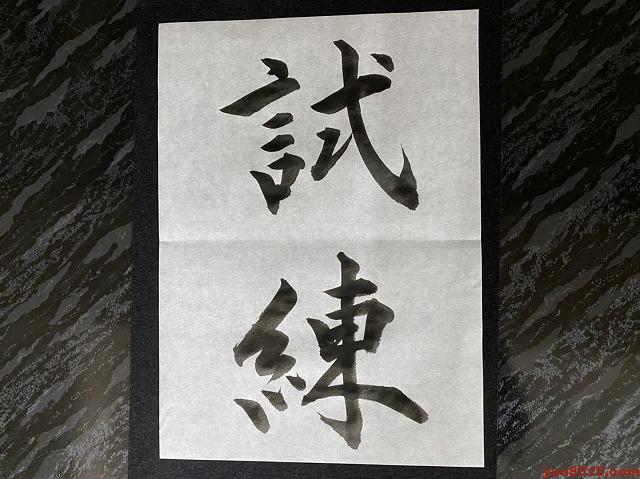 試
練
yuu8918.com